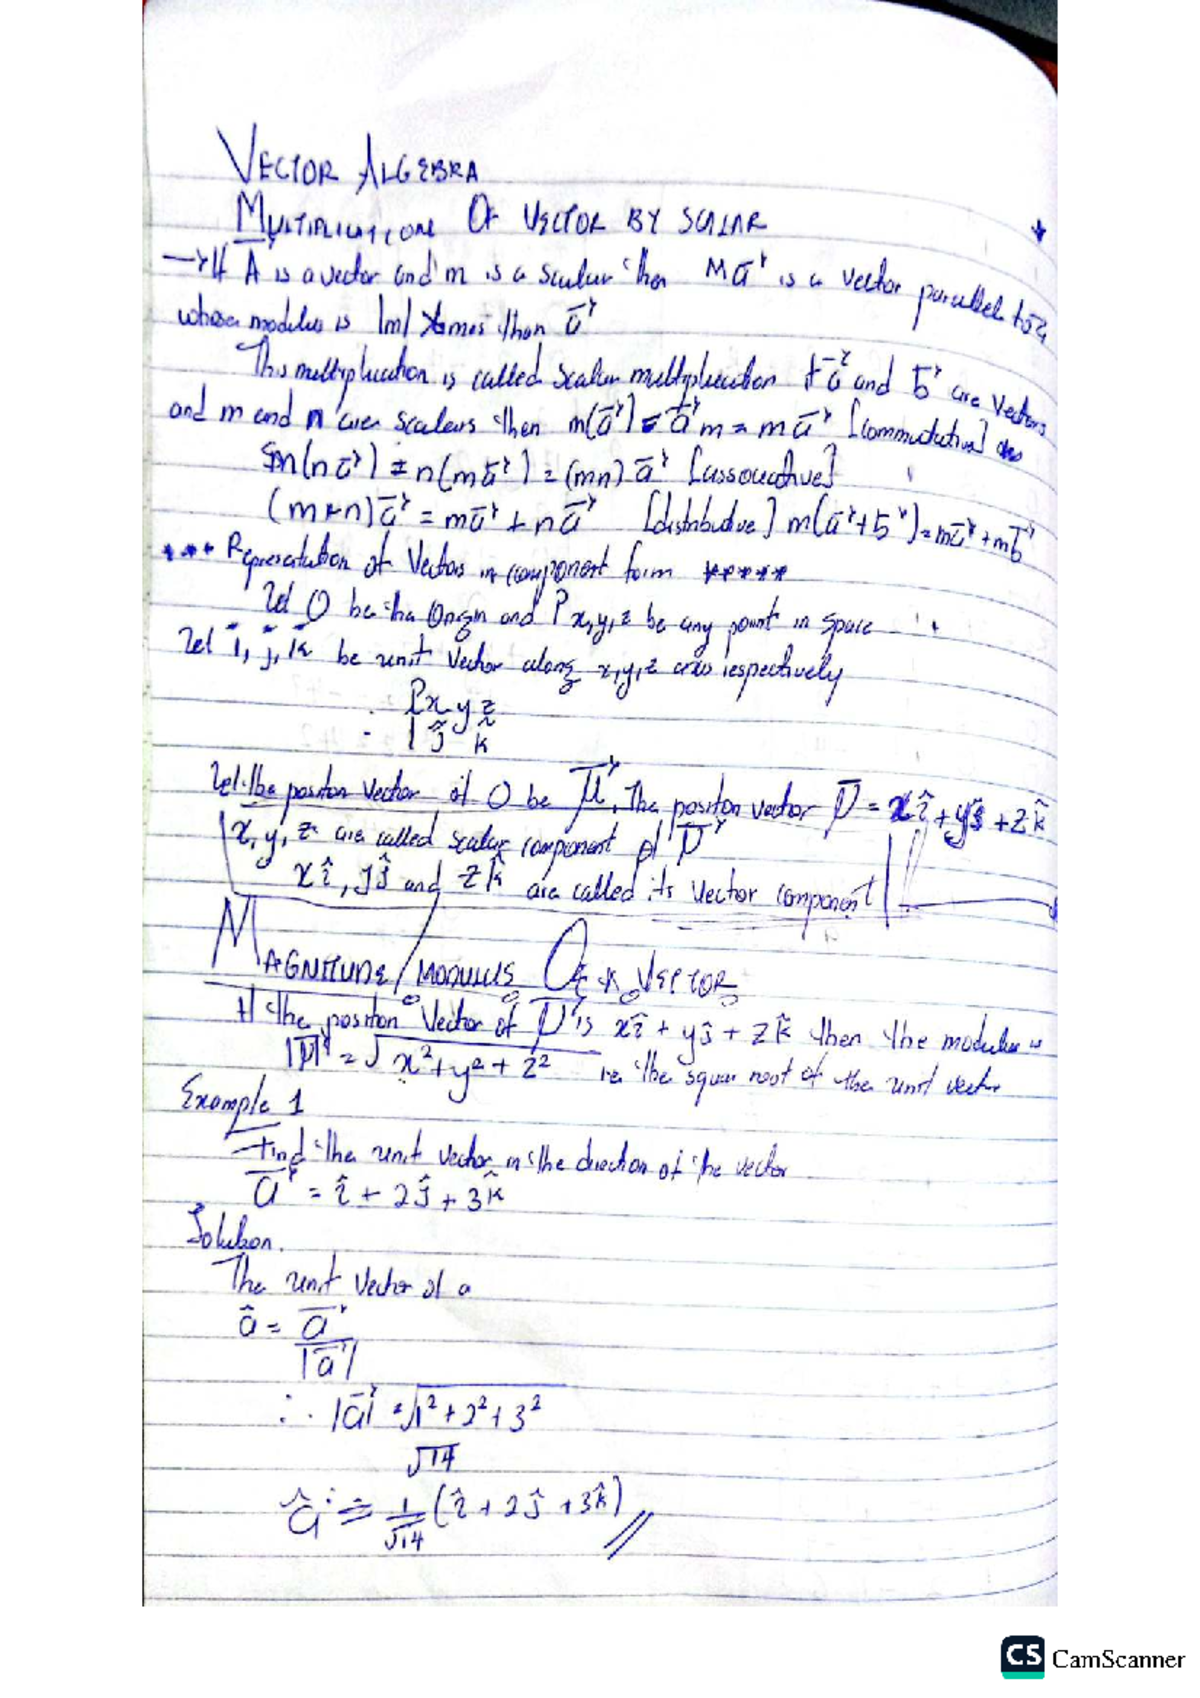 VECTOR ALGEBRA
MULTIPLICATION OF VECTOR BY SCALAR
→ If A is a vector and m is a scalar then Ma⃗ is a vector parallel to a⃗
whose modulus is |m| times than a⃗
This multiplication is called scalar multiplication If a⃗ and b⃗ are vectors
and m and n are scalars then m(a⃗) = a⃗m = ma⃗ [commutative]
m(na⃗) = n(ma⃗) = (mn)a⃗ [associative]
(m+n)a⃗ = ma⃗ + na⃗ [distributive] m(a⃗+b⃗) = ma⃗ + mb⃗
*** Representation of Vectors in component form *****
Let O be the Origin and P x,y,z be any point in space
Let i, j, k be unit vector along x,y,z axis respectively
∴ P x y z
i j k
Let the position vector of O be , The position vector = xî + yĵ + zk̂
x, y, z are called scalar component of
xî, yĵ and zk̂ are called its vector component
MAGNITUDE/MODULUS OF A VECTOR
If the position Vector of is xî + yĵ + zk̂ then the modulus is
= √x²+y²+z² i.e. the square root of the unit vector
Example 1
Find the unit vector in the direction of the vector
a⃗ = î + 2ĵ + 3k̂
Solution.
The unit vector of a
â = a⃗
|a⃗|
∴ |a⃗| = √1²+2²+3²
√14
â = 1/√14 (î + 2ĵ + 3k̂) //
CS CamScanner